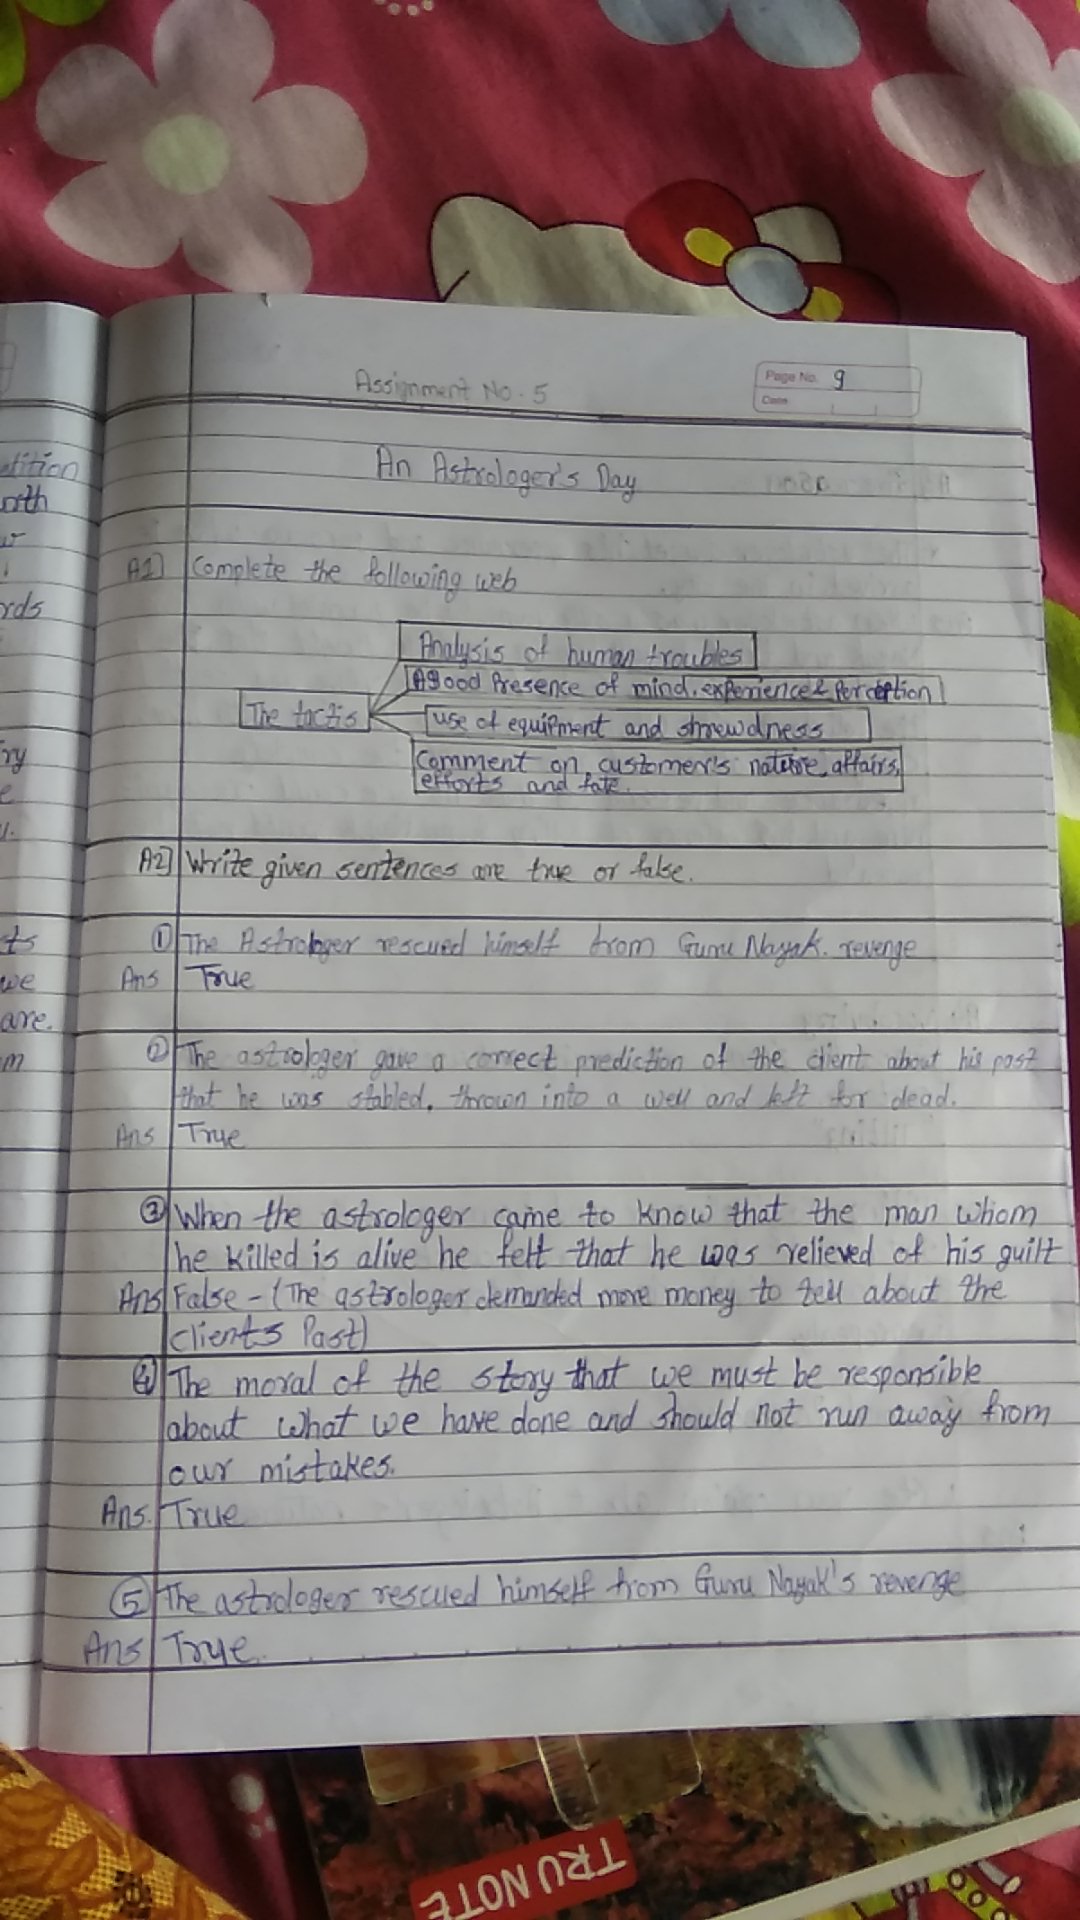 Assignment No. 5
Page No. 9
Date
An Astrologer's Day
A1] Complete the following web
Analysis of human troubles
A good Presence of mind, experience & Perception
The tactis
use of equipment and shrewdness
Comment on customer's nature, affairs,
efforts and fate.
A2] Write given sentences are true or false.
① The Astrologer rescued himself from Guru Nayak. revenge
Ans True
② The astrologer gave a correct prediction of the client about his past
that he was stabled, thrown into a well and left for dead.
Ans True
③ When the astrologer came to know that the man whom
he killed is alive he felt that he was relieved of his guilt
Ans False - (The astrologer demanded more money to tell about the
clients Past)
④ The moral of the story that we must be responsible
about what we have done and should not run away from
our mistakes.
Ans. True
⑤ The astrologer rescued himself from Guru Nayak's revenge
Ans True.
TRU NOTE